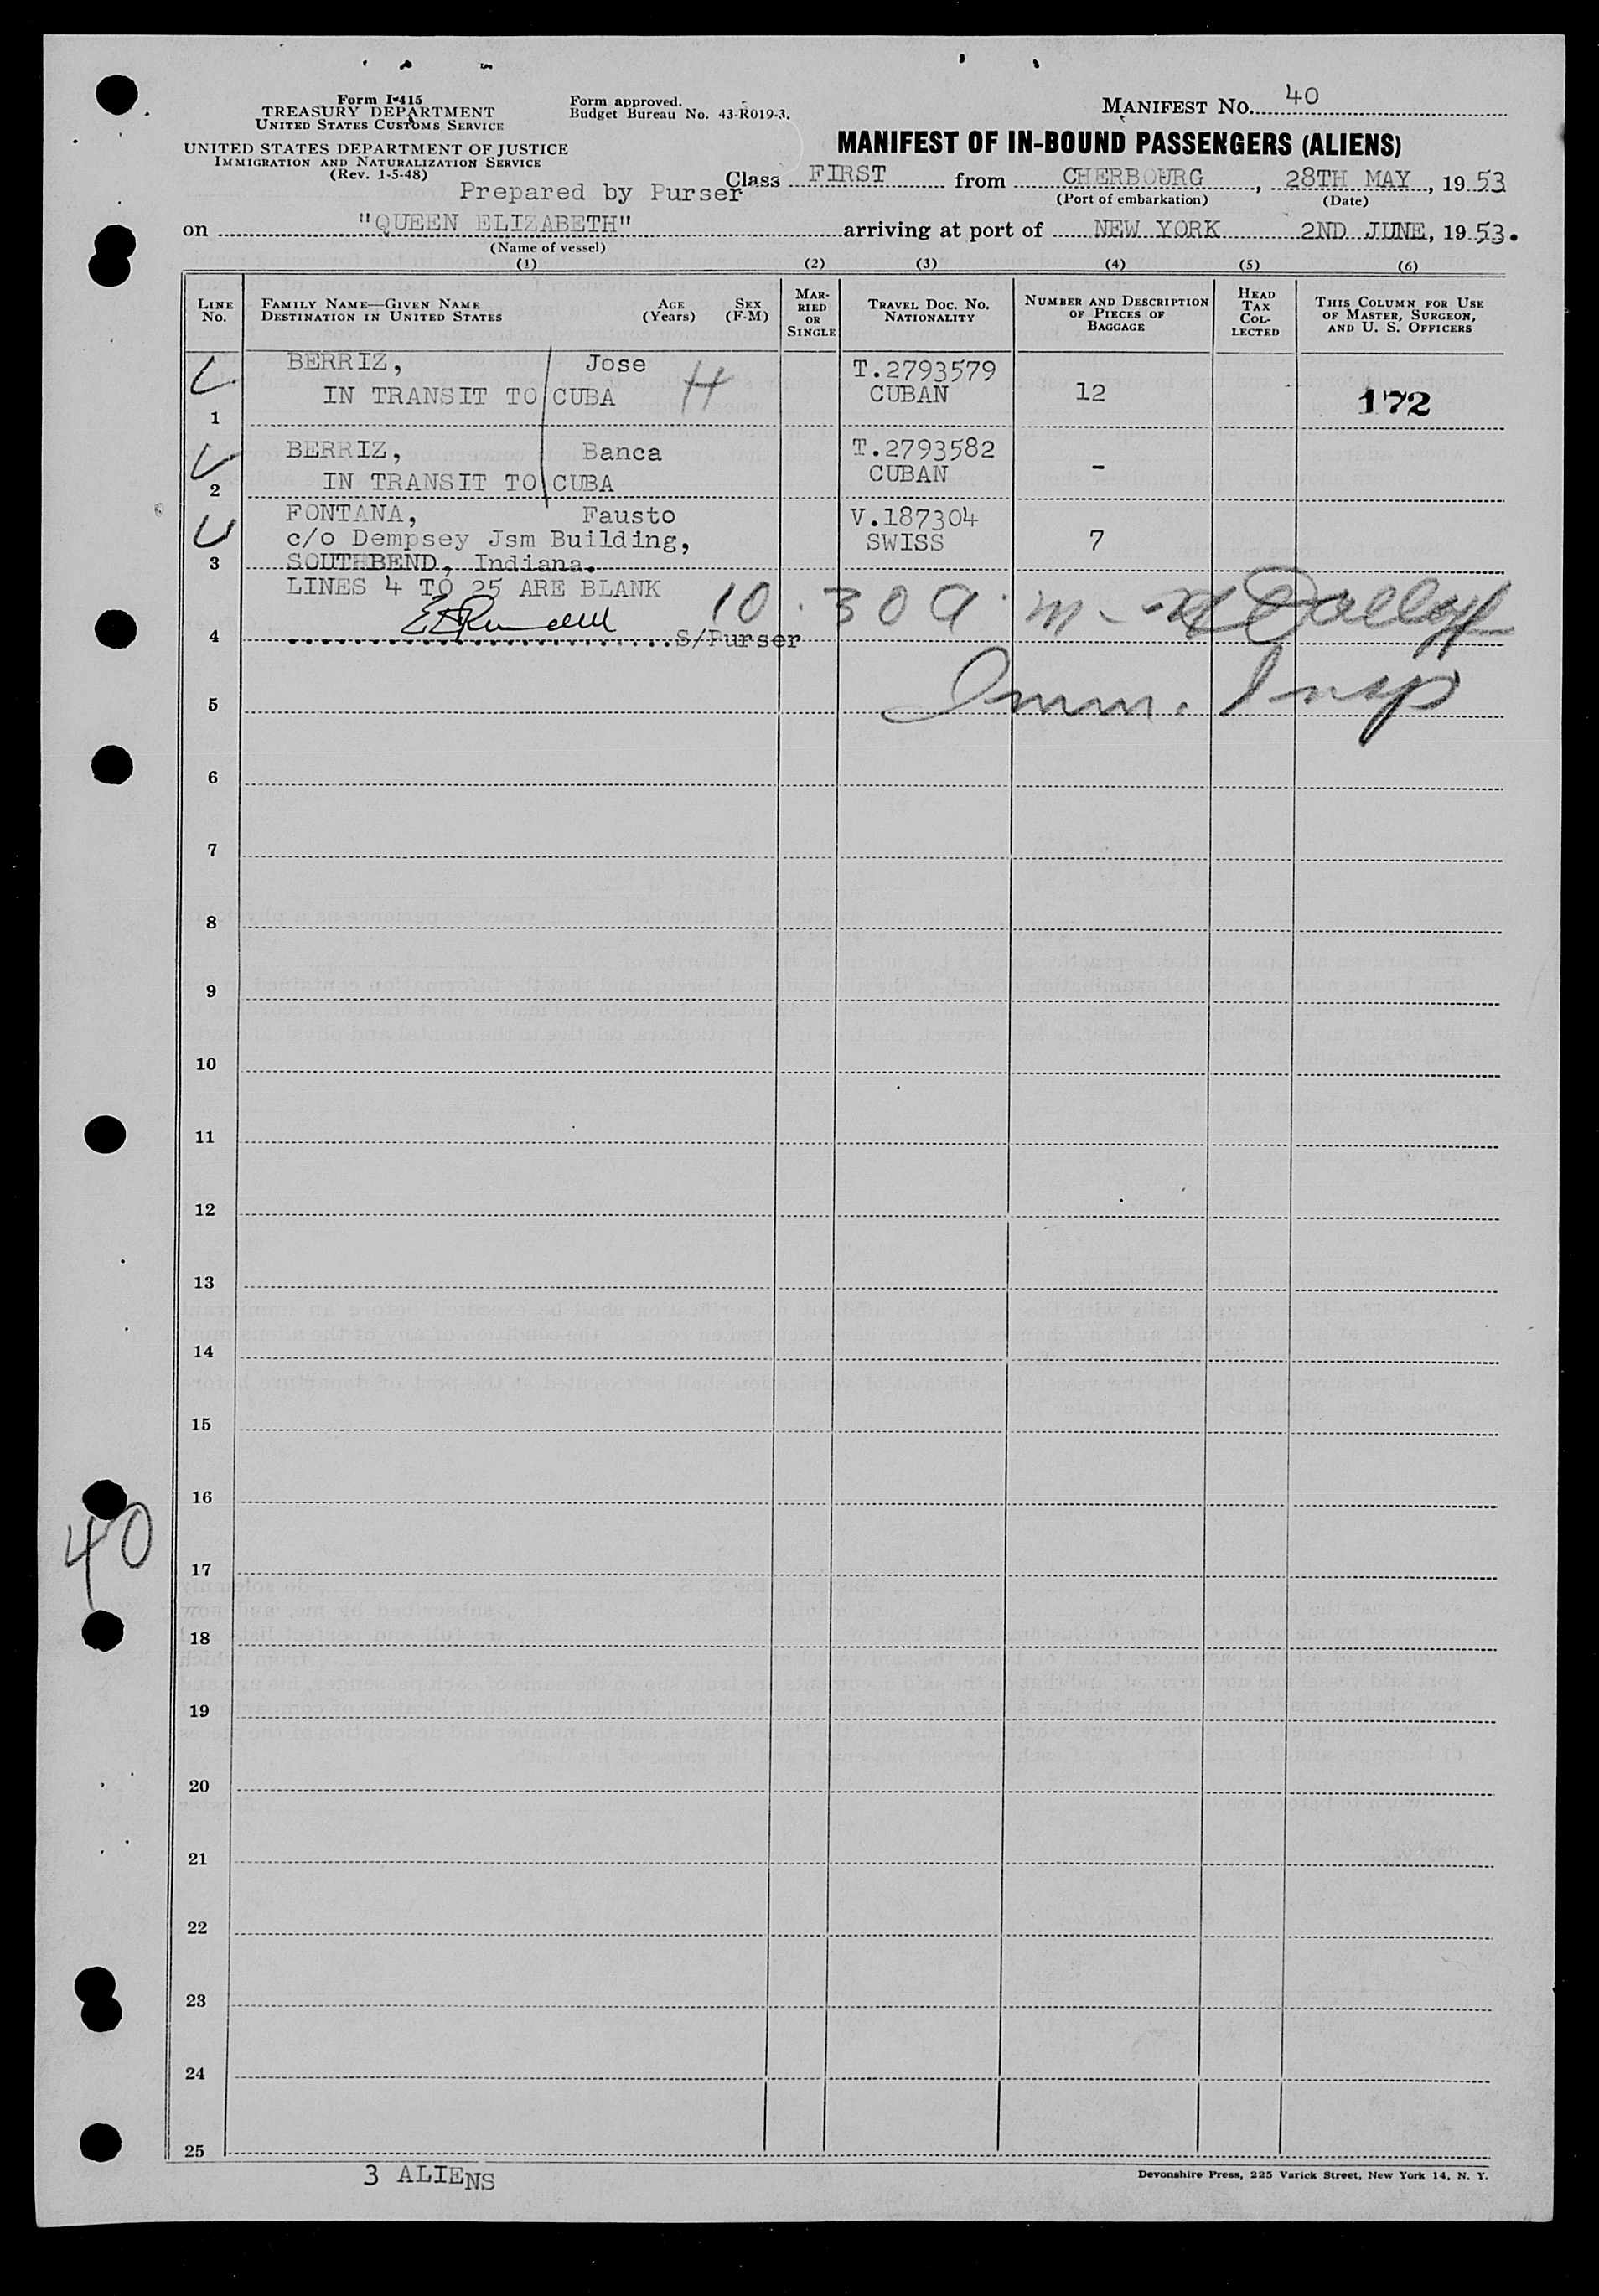 Form I-415
TREASURY DEPARTMENT
UNITED STATES CUSTOMS SERVICE
UNITED STATES DEPARTMENT OF JUSTICE
IMMIGRATION AND NATURALIZATION SERVICE
(Rev. 1-5-48)
Form approved.
Budget Bureau No. 43-R019-3.
MANIFEST NO. 40
MANIFEST OF IN-BOUND PASSENGERS (ALIENS)
Prepared by Purser
Class FIRST from CHERBOURG, 28TH MAY, 1953
(Port of embarkation) (Date)
on "QUEEN ELIZABETH" arriving at port of NEW YORK 2ND JUNE, 1953.
(Name of vessel)
(1) (2) (3) (4) (5) (6)
LINE NO.
FAMILY NAME—GIVEN NAME
DESTINATION IN UNITED STATES
AGE (Years)
SEX (F-M)
MARRIED OR SINGLE
TRAVEL DOC. NO. NATIONALITY
NUMBER AND DESCRIPTION OF PIECES OF BAGGAGE
HEAD TAX COLLECTED
THIS COLUMN FOR USE OF MASTER, SURGEON, AND U. S. OFFICERS
BERRIZ, Jose T.2793579
IN TRANSIT TO CUBA H CUBAN 12 172
1
BERRIZ, Banca T.2793582
IN TRANSIT TO CUBA CUBAN -
2
FONTANA, Fausto V.187304
c/o Dempsey Jsm Building, SWISS 7
3 SOUTHBEND, Indiana.
LINES 4 TO 25 ARE BLANK
10.30 a.m.
4 S/Purser
Imm. Insp
5
6
7
8
9
10
11
12
13
14
15
16
40
17
18
19
20
21
22
23
24
25
3 ALIENS
Devonshire Press, 225 Varick Street, New York 14, N. Y.